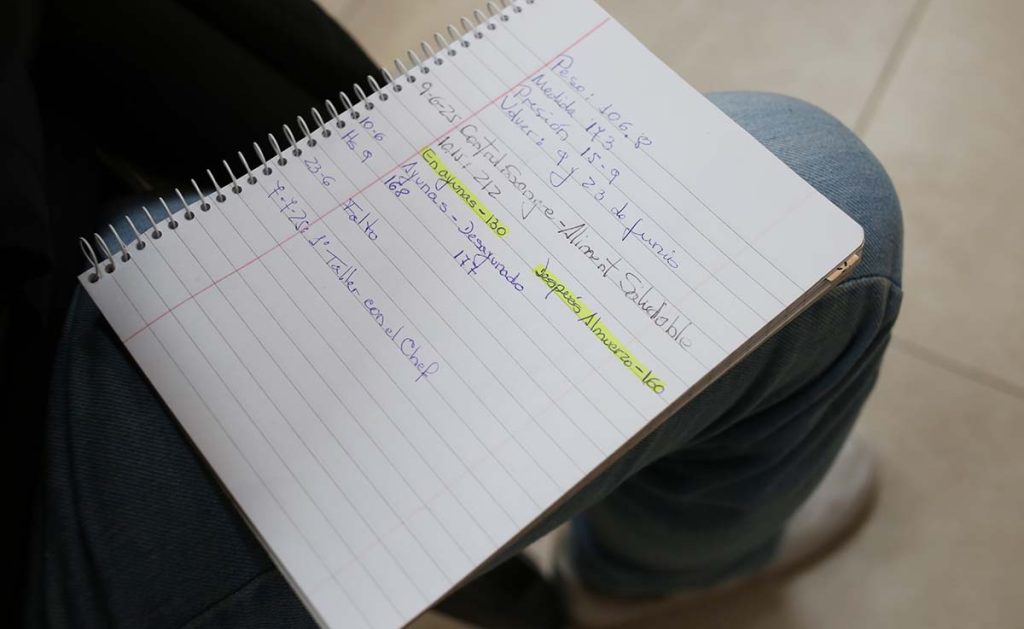 Peso: 106.8
Medida 173
Presión 15-9
Volver: 9 y 23 de junio
9-6-25 Control Sangre - Aliment Saludable
212
En ayunas - 130 después Almuerzo - 160
10.6 Ayunas - Desayunado
Hs 9 168 177
23-6 Falto
7-7-25: 1° Taller con el Chef